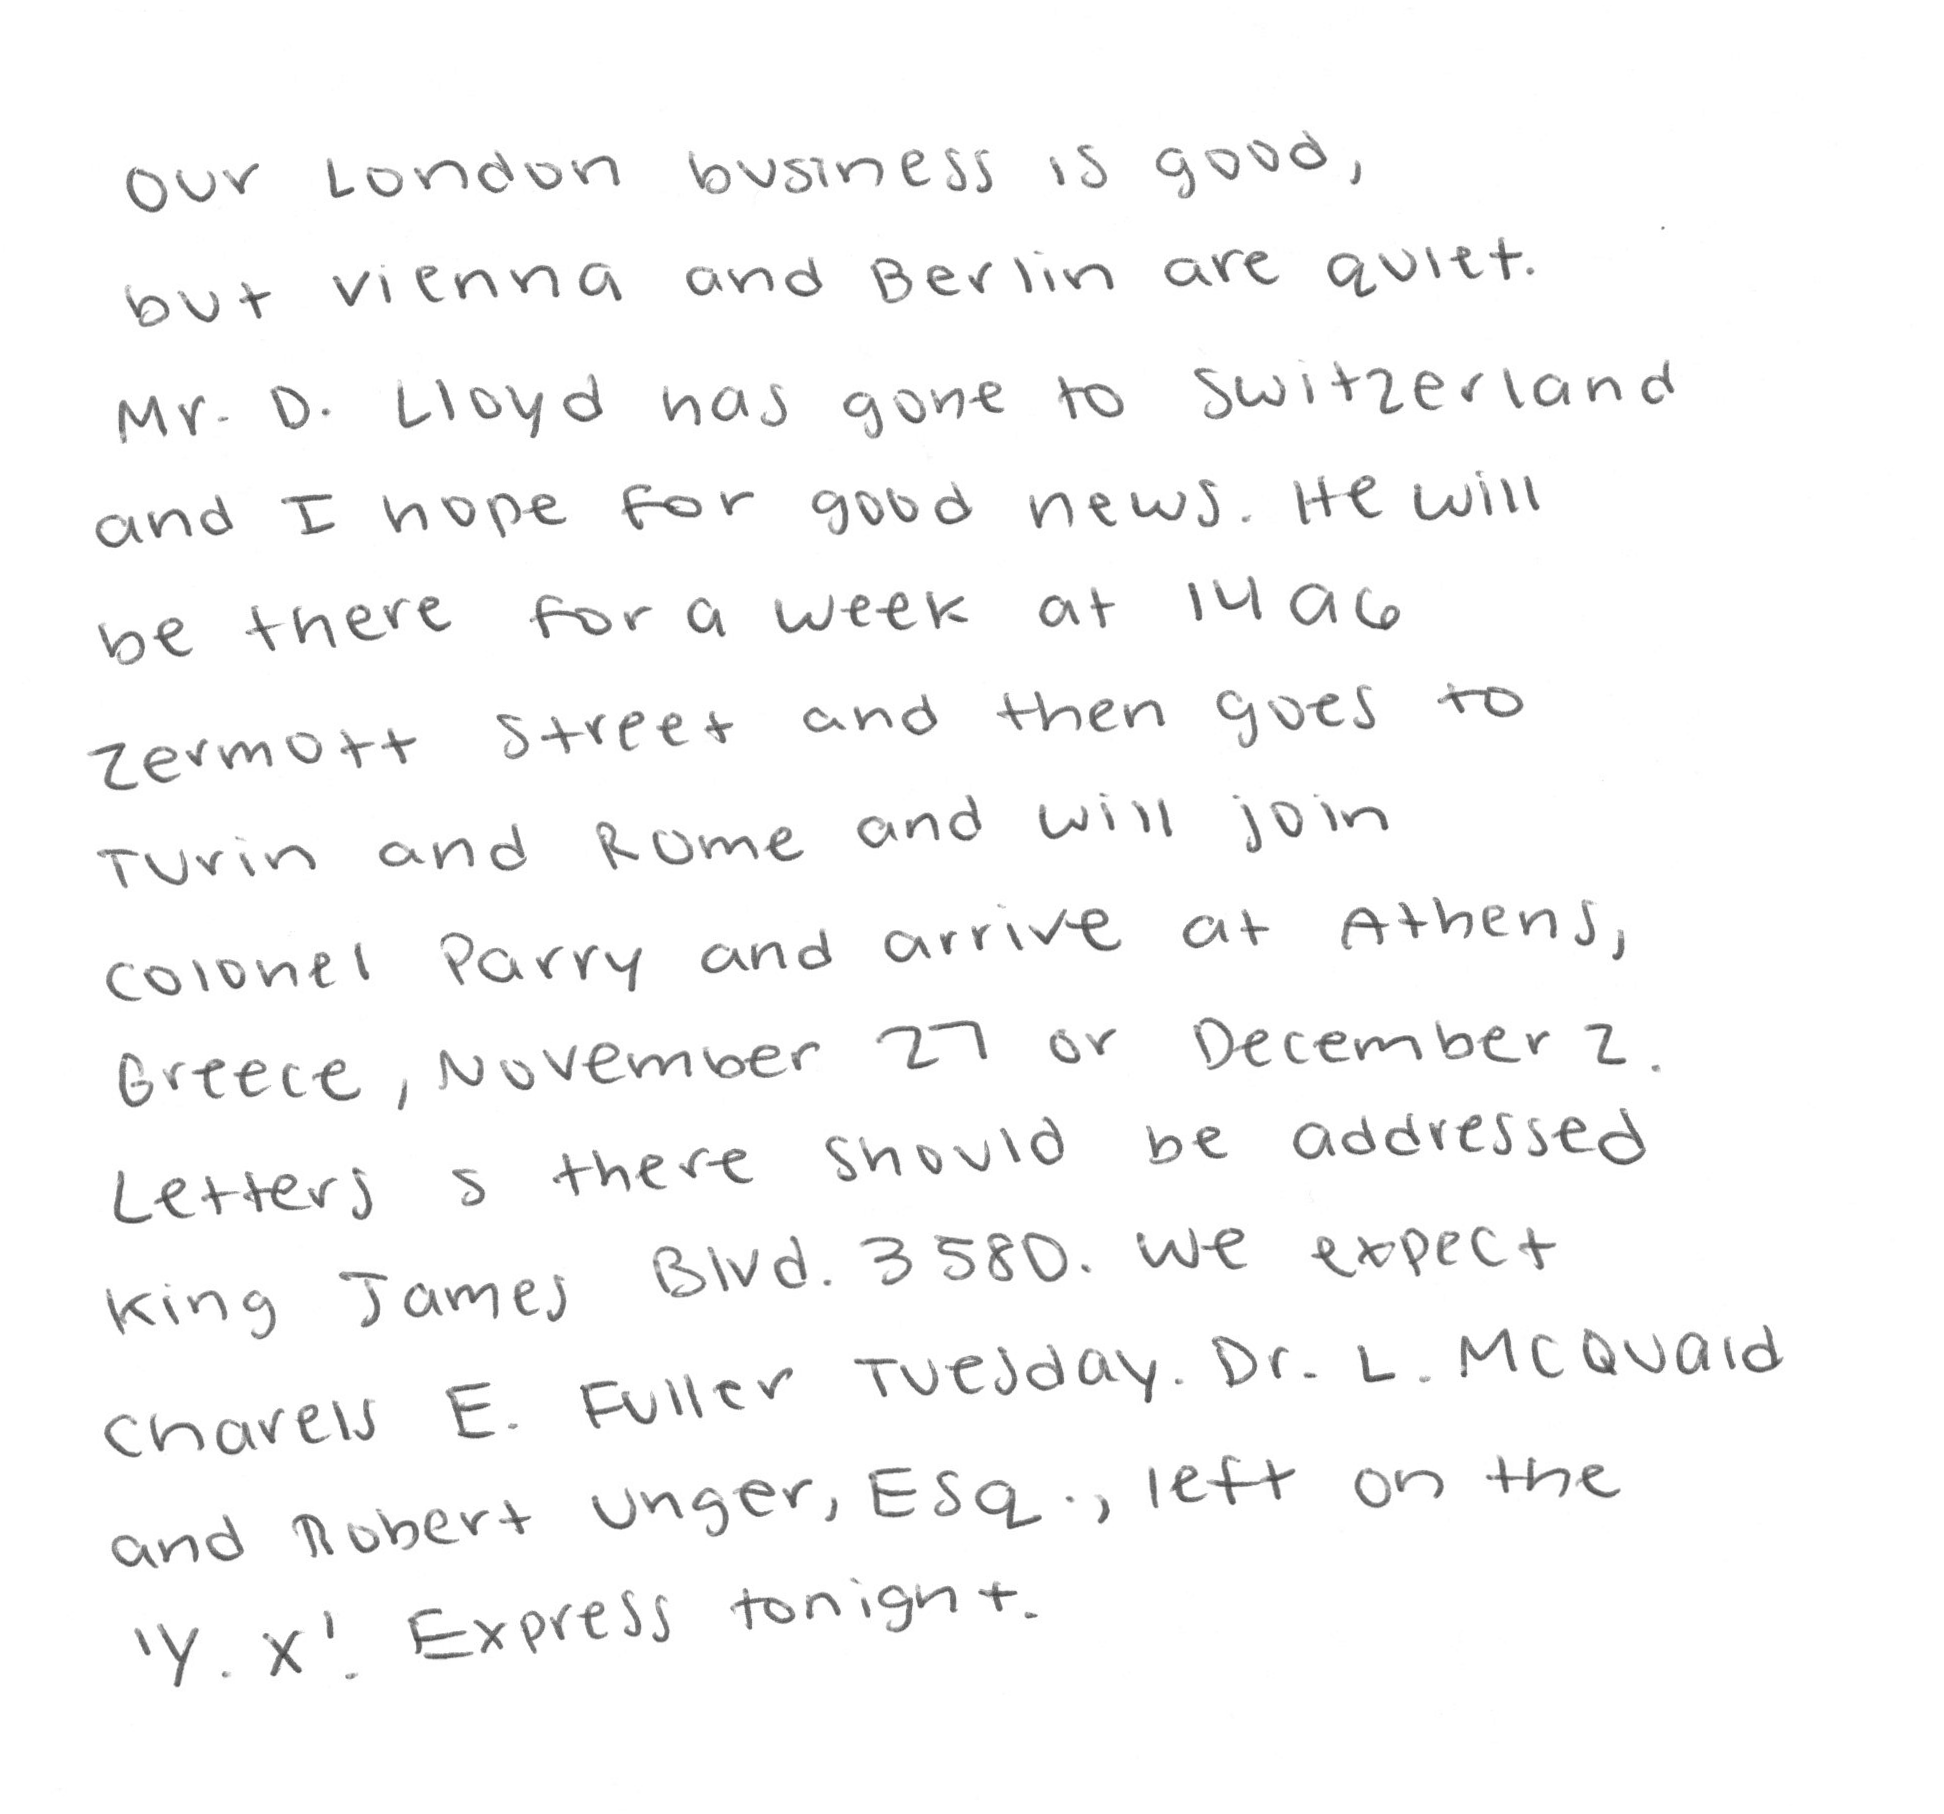 Our London business is good,
but vienna and Berlin are quiet.
Mr. D. Lloyd has gone to Switzerland
and I hope for good news. He will
be there for a week at 1496
zermott street and then goes to
Turin and Rome and will join
colonel Parry and arrive at Athens,
Greece, November 27 or December 2.
Letters s there should be addressed
King James Blvd. 3580. We expect
Charels E. Fuller Tuesday. Dr. L. McQuaid
and Robert Unger, Esq., left on the
'Y. X'. Express tonight.